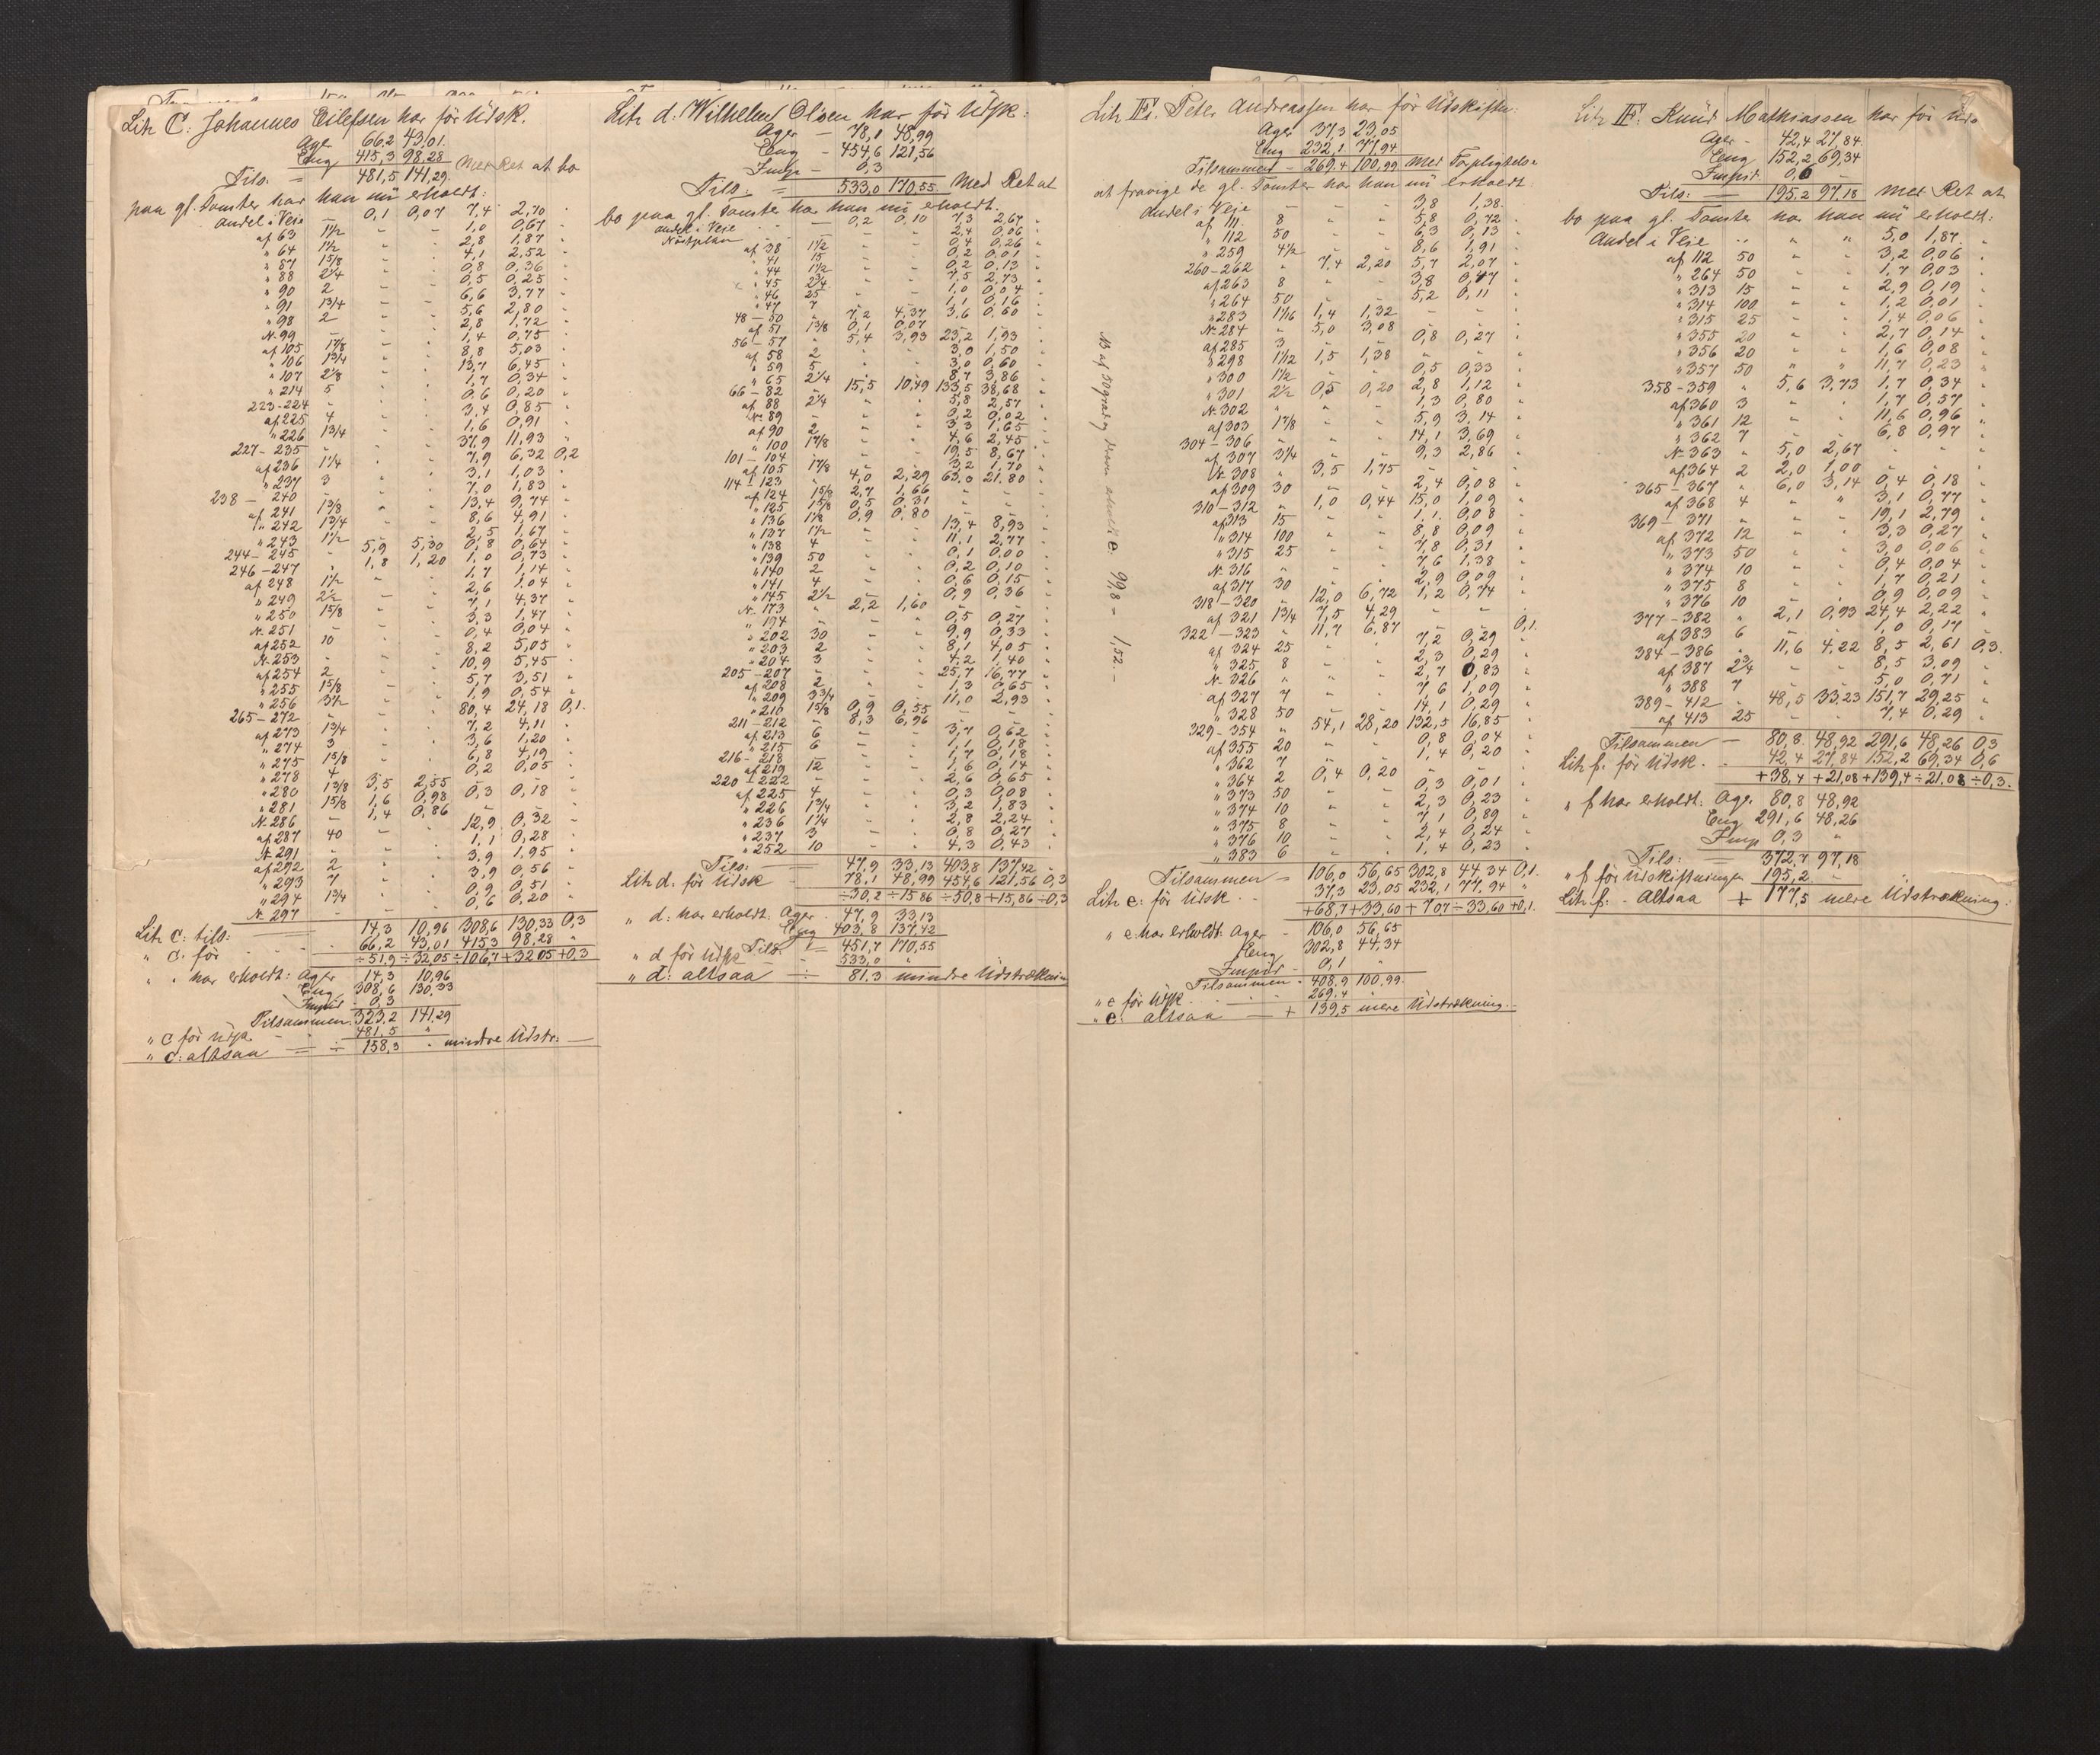 Litr C: Johannes Eilefsen har för Udsk.
Ager 66,2 43,01.
Eng 415,3 98,28
Tils: = 481,5 141,29. Med Ret at bo
paa gl. Tomter har han nü erholdt:
Andel i Veie 0,1 0,07 7,4 2,70
af 63 1½ - - 1,0 0,67
" 64 1½ 2,8 1,87
" 87 15/8 4,1 2,52
" 88 2¼ 0,8 0,36
" 90 2 0,5 0,25
" 91 13/4 6,6 3,77
" 98 2 5,6 2,80
N. 99 - 2,8 1,72
af 105 17/8 1,4 0,75
" 106 13/4 8,8 5,03
" 107 21/8 13,7 6,45
" 214 5 1,7 0,34
223-224 - 0,6 0,20
af 225 4 3,4 0,85
" 226 13/4 1,6 0,91
227-235 - 37,9 11,93
af 236 1¼ 7,9 6,32 0,2
" 237 3 3,1 1,03
238 - 240 - 7,0 1,83
af 241 13/8 13,4 9,74
" 242 13/4 8,6 4,91
" 243 1½ 2,5 1,67
244-245 - 5,9 5,30 0,8 0,64
246-247 " 1,8 1,20 1,0 0,73
af 248 1½ 1,7 1,14
" 249 2½ 2,6 1,04
" 250 15/8 7,1 4,37
N. 251 - 3,3 1,47
af 252 10 0,4 0,04
N. 253 - 8,2 5,05
af 254 2 10,9 5,45
" 255 15/8 5,7 3,51
" 256 3½ 1,9 0,54
265-272 - 80,4 24,18 0,1.
af 273 13/4 7,2 4,11
" 274 3 3,6 1,20
" 275 15/8 6,8 4,19
" 278 4 0,2 0,05
" 280 13/8 3,5 2,55
" 281 15/8 1,6 0,98 0,3 0,18
N. 286 - 1,4 0,86
af 287 40 12,9 0,32
N. 291 - 1,1 0,28
af 292 2 3,9 1,95
" 293 7 3,9 0,56
" 294 13/4 0,9 0,51
N. 297 - 0,6 0,20
Litr C: tils: 14,3 10,96 308,6 130,33 0,3
" C. för 66,2 43,01 415,3 98,28 "
÷51,9 ÷32,05 ÷106,7 +32,05 +0,3
" . har erholdt: Ager 14,3 10,96
Eng 308,6 130,33
Impd 0,3
Tilsammen 323,2 141,29
" C för Udsk - 481,5 "
" C: altsaa = ÷ 158,3 " mindre Udstr: —
Litr d: Wilhelm Olsen har för Udsk:
Ager - 78,1 48,99
Eng - 454,6 121,56
Impr - 0,3
Tils: = 533,0 170,55 Med Ret at
bo paa gl. Tomter har han nü erholdt.
andel i Veie - 0,2 0,10 7,3 2,67
Nöstplan 2,4 0,06
af 38 1½ 0,4 0,26
" 41 15 0,2 0,01
" 44 1½ 0,2 0,13
" 45 2¾ 7,5 2,73
" 46 25 1,0 0,04
" 47 7 1,1 0,16
48-50 " 7,2 4,37 3,6 0,60
af 51 13/8 0,1 0,07
56-57 " 5,4 3,93 23,2 1,93
af 58 2 3,0 1,50
" 59 5 3,0 0,60
" 65 2¼ 8,7 3,86
66-82 - 15,5 10,49 133,5 38,68
af 88 2¼ 5,8 2,57
N. 89 - 0,2 0,02
af 90 2 3,3 1,65
" 100 17/8 4,6 2,45
101-104 - 19,5 8,67
af 105 17/8 3,2 1,70
114-123 " 4,0 2,29 63,3 21,80
af 124 15/8 2,7 1,66
" 125 15/8 0,5 0,31
" 136 11/8 0,9 0,80
" 137 1½ 13,4 8,93
" 138 4 11,1 2,77
" 139 50 0,1 0,00
" 140 2 0,2 0,10
" 141 4 0,6 0,15
" 145 2½ 0,9 0,36
N. 173 " 2,2 1,60
" 194 " 0,5 0,27
" 202 30 9,9 0,33
" 203 2 8,1 4,05
" 204 3 4,2 1,40
205-207 - 25,7 16,77
af 208 2 1,3 0,65
" 209 3¾ 11,0 2,93
" 210 15/8 0,9 0,55
211-212 " 8,3 6,96
af 213 6 3,7 0,62
" 215 6 1,1 0,18
216-218 - 1,7 0,18
af 219 12 1,6 0,14
220-222 - 2,6 0,65
af 225 4 0,3 0,08
" 226 13/4 3,2 1,83
" 236 1¼ 2,8 2,24
" 237 3 0,8 0,27
" 252 10 4,3 0,43
Tils: = 47,9 33,13 403,8 137,42
Litr d: för Udsk - 78,1 48,99 454,6 121,56 0,3
÷30,2 ÷15,86 ÷50,8 +15,86 ÷0,3
" d: har erholdt: Ager 47,9 33,13
Eng 403,8 137,42
Tils: = 451,7 170,55
" d för Udsk 533,0 "
" d: altsaa - ÷ 81,3 mindre Udstrækning
Litr E: Peter Andreassen har för Udskiftn:
Ager 37,3 23,05
Eng 232,1 77,94
Tilsammen - 269,4 100,99 Med Forpligtelse
at fravige de gl. Tomter har han nü erholdt:
andel i Veie - - - 3,8 1,38.
af 111. 8 5,8 0,72
" 112 50 6,3 0,13
" 259 4½ 8,6 1,91
260-262 " 7,4 2,20 5,7 2,07
af 263 8 3,8 0,47
" 264 50 5,2 0,11
" 283 11/16 1,4 1,32
N. 284 " 5,0 3,08
af 285 3 0,8 0,27
" 298 11/12 1,5 1,38
" 300 1½ 0,5 0,33
" 301 2½ 0,5 0,20 2,8 1,12
N. 302 " 1,3 0,80
af 303 17/8 5,9 3,14
304-306 " 14,1 3,69
af 307 3¼ 9,3 2,86
N. 308 " 3,5 1,75
af 309 30 2,4 0,08
310-312 " 1,0 0,44 15,0 1,09
af 313 15 1,1 0,08
" 314 100 8,8 0,09
" 315 25 7,8 0,31
N. 316 " 7,6 1,38
af 317 30 2,9 0,09
318-320 " 12,0 6,72 1,2 0,74
af 321 13/4 7,5 4,29
322-323 " 11,7 6,87 0,1.
af 324 25 7,2 0,29
" 325 8 2,3 0,29
N. 326 " 2,7 0,83
af 327 7 7,6 1,09
" 328 50 14,1 0,29
329-354 " 54,1 28,20 132,5 16,85
af 355 20 0,8 0,04
" 362 7 1,4 0,20
" 364 2 0,4 0,20
" 373 50 0,3 0,01
" 374 10 2,3 0,23
" 375 8 7,1 0,89
" 376 10 2,4 0,24
" 383 6 1,4 0,23
Tilsammen - 106,0 56,65 302,8 44,34 0,1.
Litr e: för Udsk. - 37,3 23,05 232,1 77,94 "
+68,7 +33,60 +70,7 ÷33,60 +0,1.
" e. har erholdt: Ager - 106,0 56,65
Eng 302,8 44,34
Impd - 0,1
Tilsammen - 408,9 100,99.
" e för Udsk. 269,4 "
" e: altsaa — + 139,5 mere Udstrækning. —
e: 99,8 - 1,52. -
Litr F: Knüd Mathiassen har för Uds
Ager - 42,4 27,84.
Eng 152,2 69,34
Impd 0,6 -
Tils: = 195,2 97,18 Med Ret at
bo paa gl. Tomter har han nü erholdt:
Andel i Veie " " " 5,0 1,87.
af 112 50 3,2 0,06
" 264 50 1,7 0,03
" 313 15 2,9 0,19
" 314 100 1,2 0,01
" 315 25 1,4 0,06
" 355 20 2,7 0,14
" 356 20 1,6 0,08
" 357 50 11,7 0,23
358-359 " 5,6 3,73 1,7 0,34
af 360 3 1,7 0,57
" 361 12 11,6 0,96
" 362 7 6,8 0,97
N. 363 " 5,0 2,67
af 364 2 2,0 1,00
365-367 " 6,0 3,14 0,4 0,18
af 368 4 3,1 0,77
369-371 " 19,1 2,79
af 372 12 3,3 0,27
" 373 50 3,0 0,06
" 374 10 0,4 0,04
" 375 8 1,7 0,21
" 376 10 0,9 0,09
377-382 " 2,1 0,93 24,4 2,22
af 383 6 1,0 0,17
384-386 . 11,6 4,22 8,5 2,61 0,3.
af 387 2¾ 8,5 3,09
" 388 7 5,0 0,71
389-412 - 48,5 33,23 151,7 29,25
af 413 25 7,4 0,29
Tilsammen - 80,8 48,92 291,6 48,26 0,3
Litr f. för Udsk. - 42,4 27,84 152,2 69,34 0,6
+38,4 +21,08 +139,4 ÷21,08 ÷0,3.
" f har erholdt: Ager 80,8 48,92
Eng 291,6 48,26
Imp 0,3 "
Tils: = 372,7 97,18
" f för Udskiftningen 195,2 "
Litr f: - Altsaa + 177,5 mere Udstrækning: